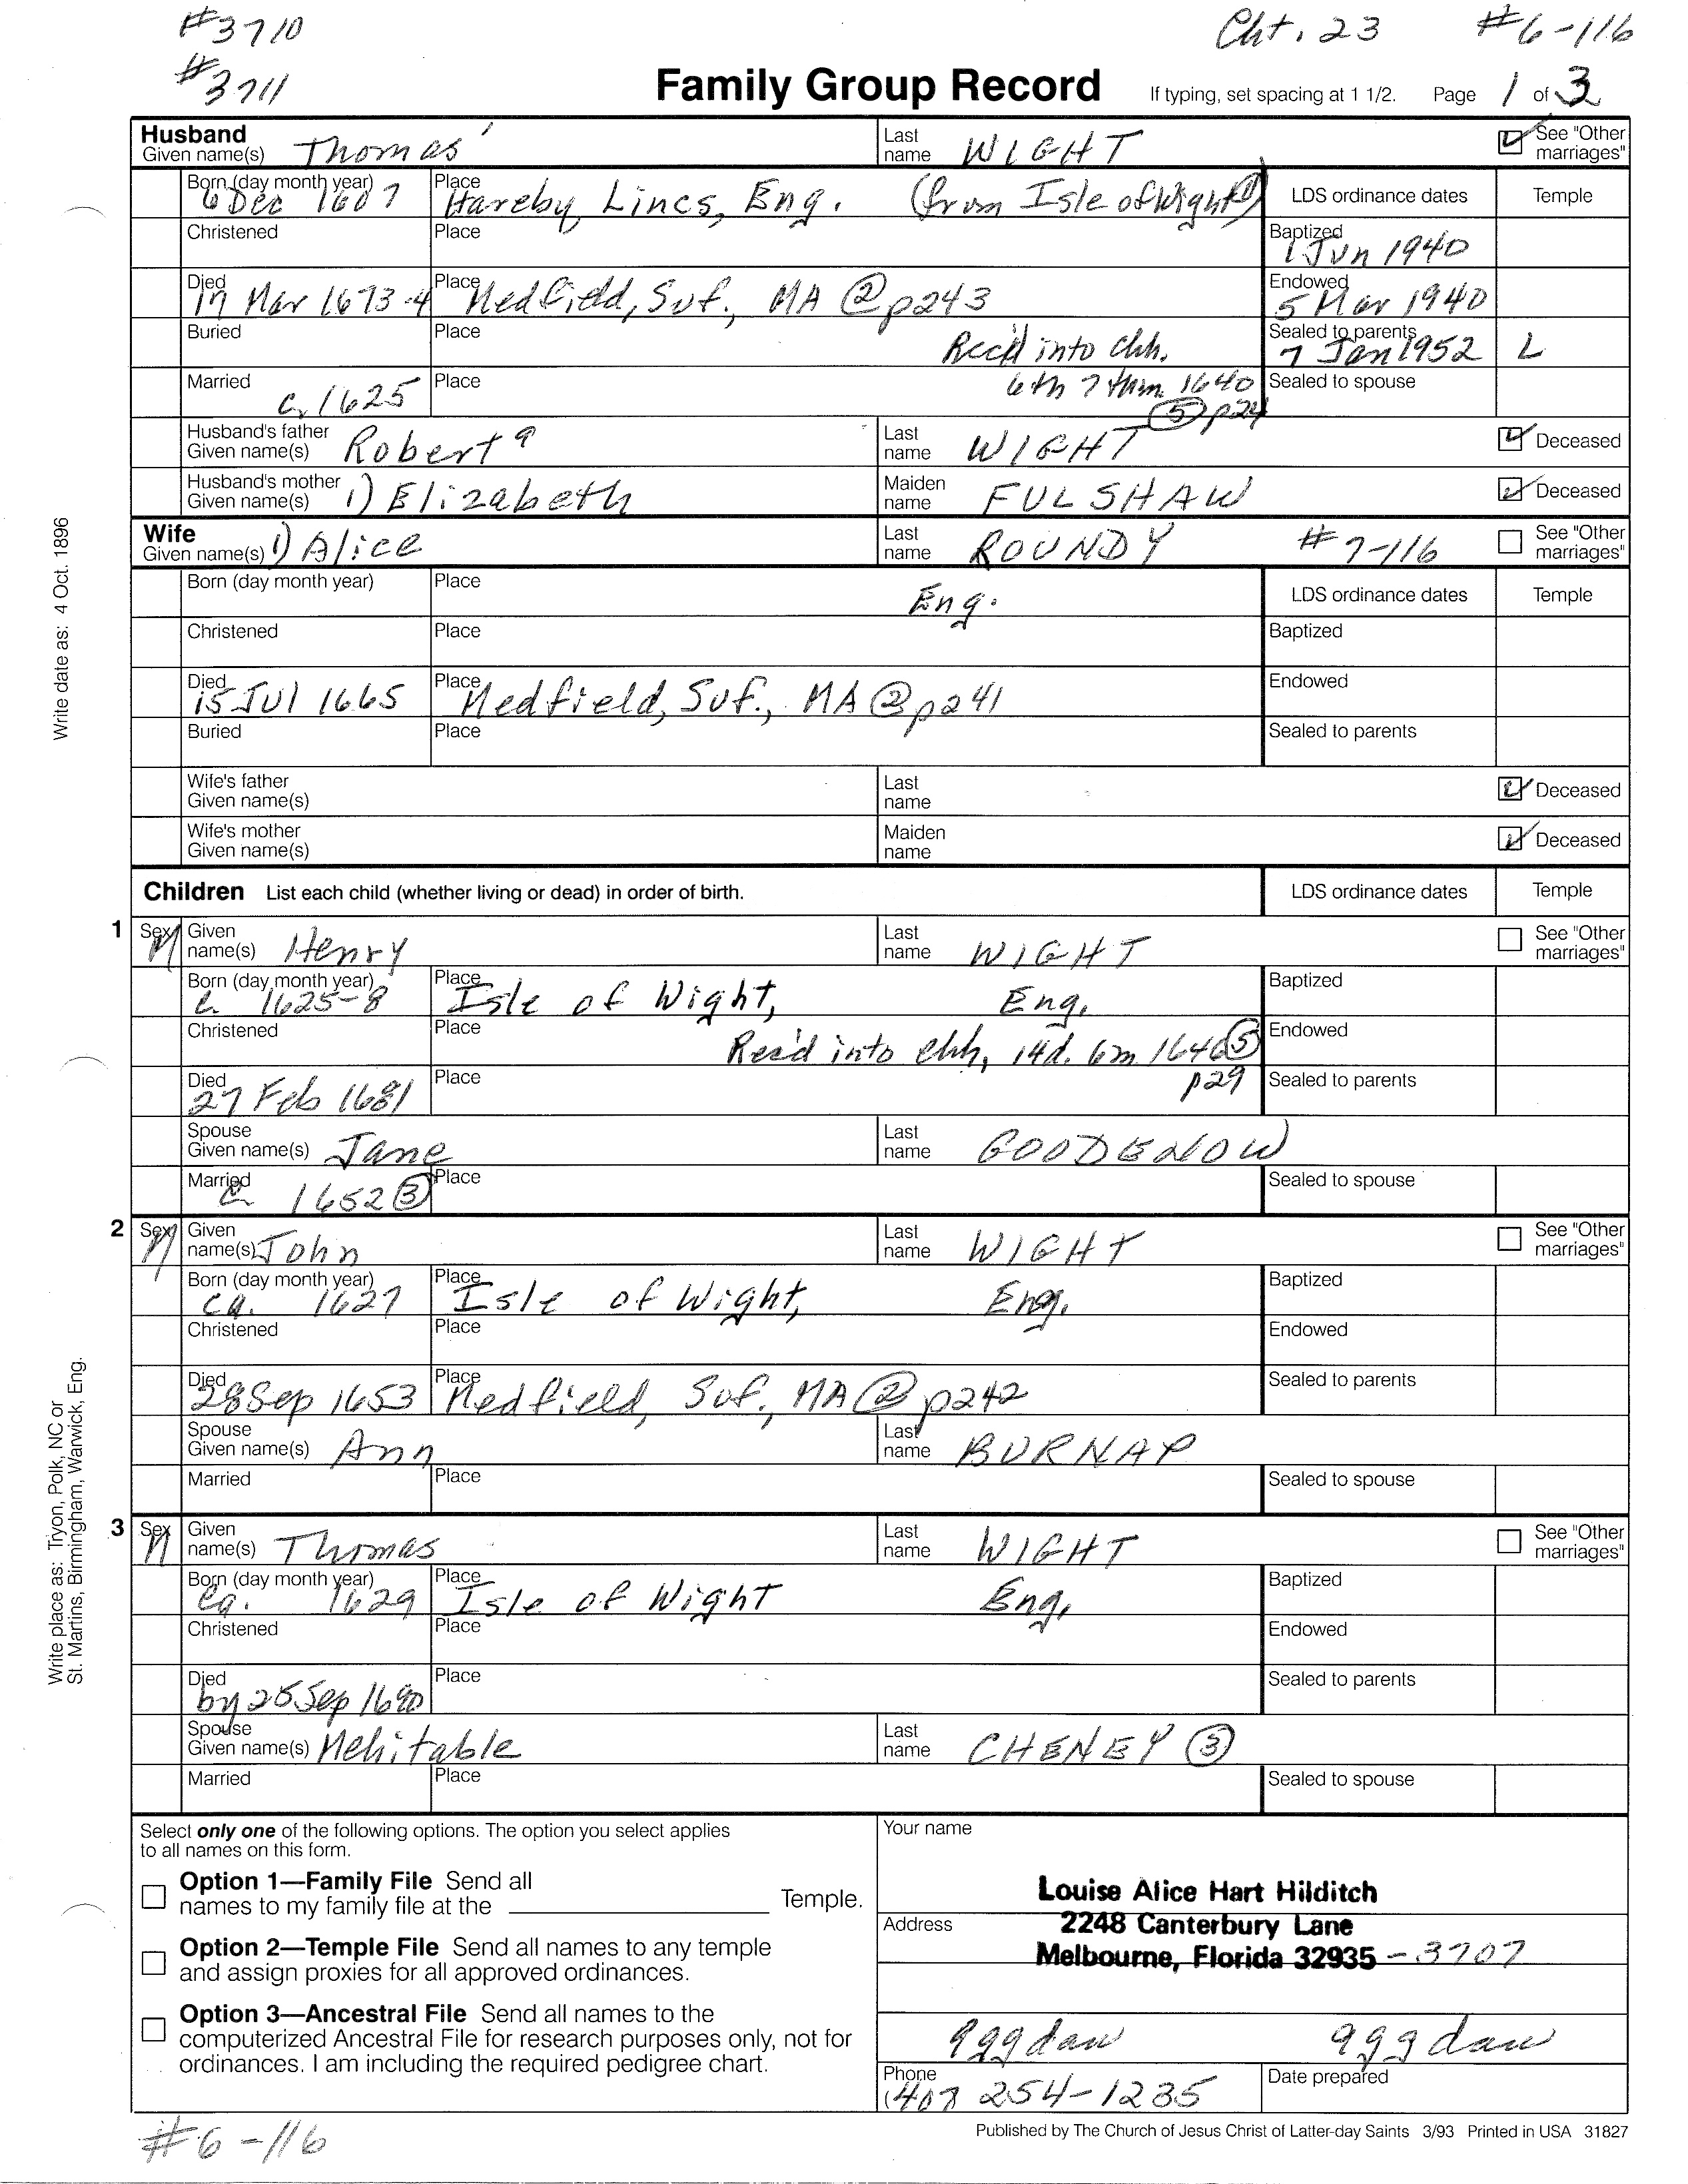 #3710
Cht. 23 #6-116
#3711
Family Group Record If typing, set spacing at 1 1/2. Page 1 of 3
Husband
Given name(s) Thomas' Last name WIGHT See "Other marriages"
Born (day month year) 6 Dec 1607 Place Hareby, Lincs, Eng. (from Isle of Wight ①) LDS ordinance dates Temple
Christened Place Baptized 1 Jun 1940
Died 17 Mar 1673-4 Place Medfield, Suf., MA ② p243 Endowed 5 Mar 1940
Buried Place Rec'd into chh. Sealed to parents 7 Jan 1952 L
Married c. 1625 Place 6th 7thm. 1640 ⑤ p24 Sealed to spouse
Husband's father Given name(s) Robert 9 Last name WIGHT Deceased
Husband's mother Given name(s) 1) Elizabeth Maiden name FULSHAW Deceased
Wife
Given name(s) 1) Alice Last name ROUNDY #7-116 See "Other marriages"
Born (day month year) Place Eng. LDS ordinance dates Temple
Christened Place Baptized
Died 15 Jul 1665 Place Medfield, Suf., MA ② p241 Endowed
Buried Place Sealed to parents
Wife's father Given name(s) Last name Deceased
Wife's mother Given name(s) Maiden name Deceased
Children List each child (whether living or dead) in order of birth. LDS ordinance dates Temple
1 Sex M Given name(s) Henry Last name WIGHT See "Other marriages"
Born (day month year) c. 1625-8 Place Isle of Wight, Eng. Baptized
Christened Place Rec'd into chh, 14d. 6m 1646 ⑤ Endowed
Died 27 Feb 1681 Place p29 Sealed to parents
Spouse Given name(s) Jane Last name GOODENOW
Married c 1652 ③ Place Sealed to spouse
2 Sex M Given name(s) John Last name WIGHT See "Other marriages"
Born (day month year) ca. 1627 Place Isle of Wight, Eng. Baptized
Christened Place Endowed
Died 28 Sep 1653 Place Medfield, Suf., MA ② p242 Sealed to parents
Spouse Given name(s) Ann Last name BURNAP
Married Place Sealed to spouse
3 Sex M Given name(s) Thomas Last name WIGHT See "Other marriages"
Born (day month year) Ca. 1629 Place Isle of Wight Eng. Baptized
Christened Place Endowed
Died by 25 Sep 1690 Place Sealed to parents
Spouse Given name(s) Mehitable Last name CHENEY ③
Married Place Sealed to spouse
Write date as: 4 Oct. 1896
Write place as: Tryon, Polk, NC or
St. Martins, Birmingham, Warwick, Eng.
Select only one of the following options. The option you select applies
to all names on this form.
Option 1—Family File Send all
names to my family file at the Temple.
Option 2—Temple File Send all names to any temple
and assign proxies for all approved ordinances.
Option 3—Ancestral File Send all names to the
computerized Ancestral File for research purposes only, not for
ordinances. I am including the required pedigree chart.
Your name
Louise Alice Hart Hilditch
Address 2248 Canterbury Lane
Melbourne, Florida 32935 - 3707
9gg dau 9gg dau
Phone (407 254-1235 Date prepared
Published by The Church of Jesus Christ of Latter-day Saints 3/93 Printed in USA 31827
#6-116